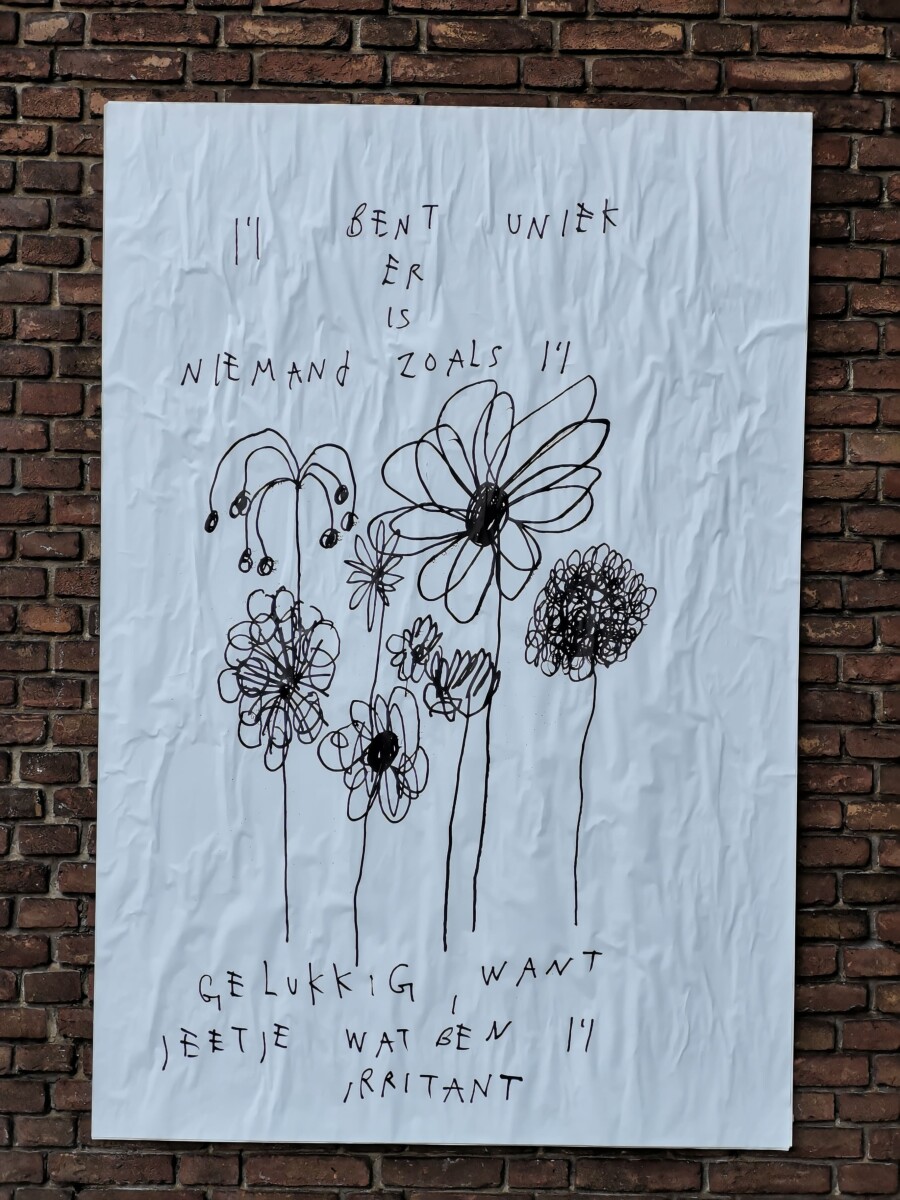 JIJ BENT UNIEK
ER
IS
NIEMANd ZOALS JIJ
GELUKKiG, WANT
JEETJE WAT BEN JIJ
iRRITANT